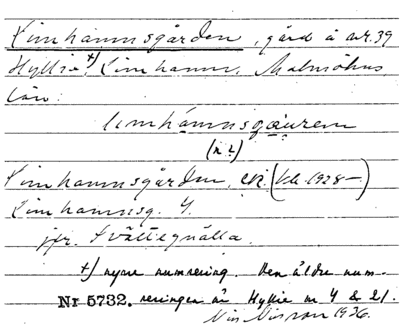 Limhamnsgården, gård å nr. 39
Hyllie +) Limhamn, Malmöhus
län:
limhamnsgaurem
(n. 2)
Limhamnsgården, (1928—)
Limhamnsg. 4.
jfr. Svältegnälla.
+) nyare numrering. Den äldre num-
Nr 5732. reringen är Hyllie nr 4 & 21.
Nils Nilsson 1936.